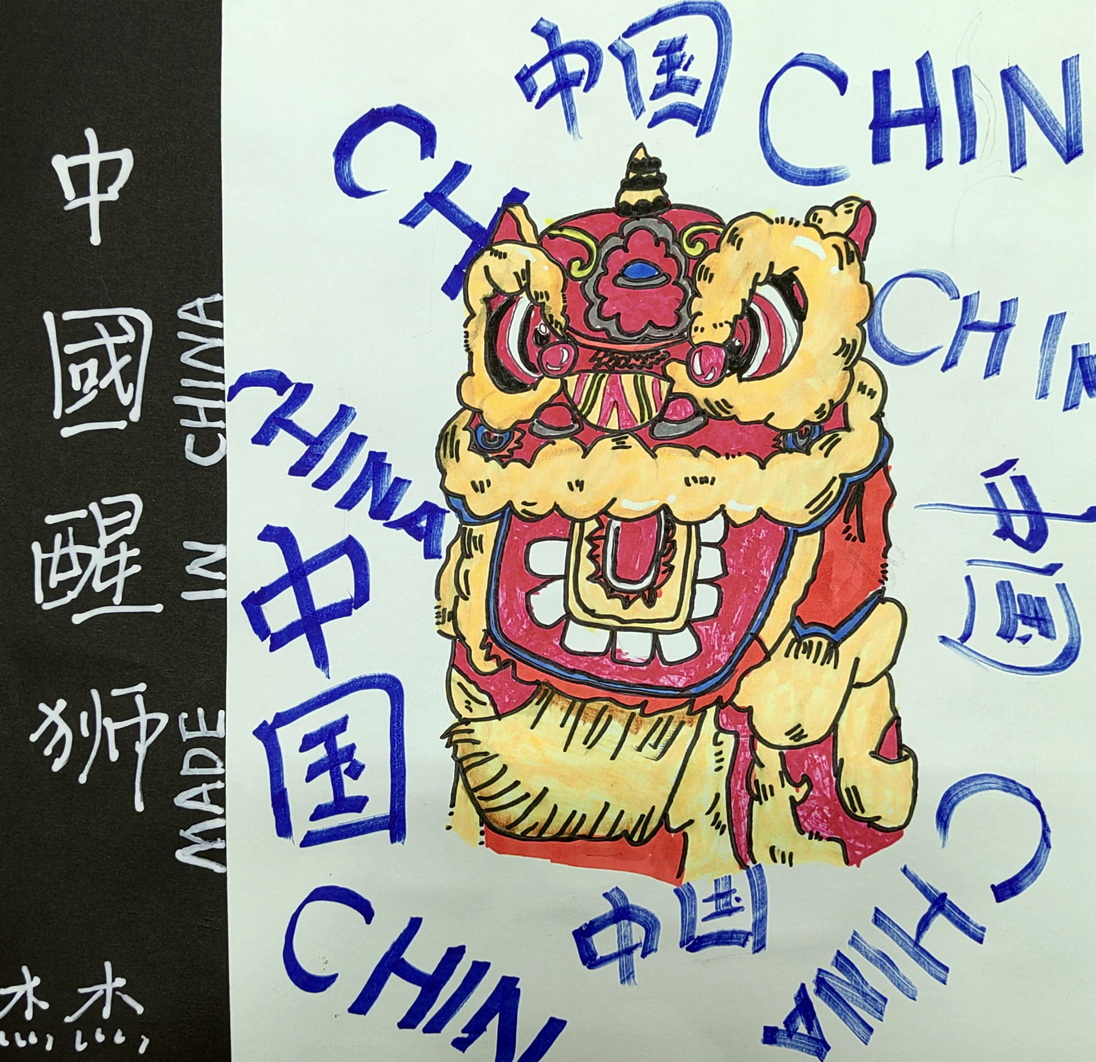 中國醒狮
MADE IN CHINA
杰杰
中国
CHIN
CH
CHIN
CHINA
中国
中国
CHINA
中国
CHIN